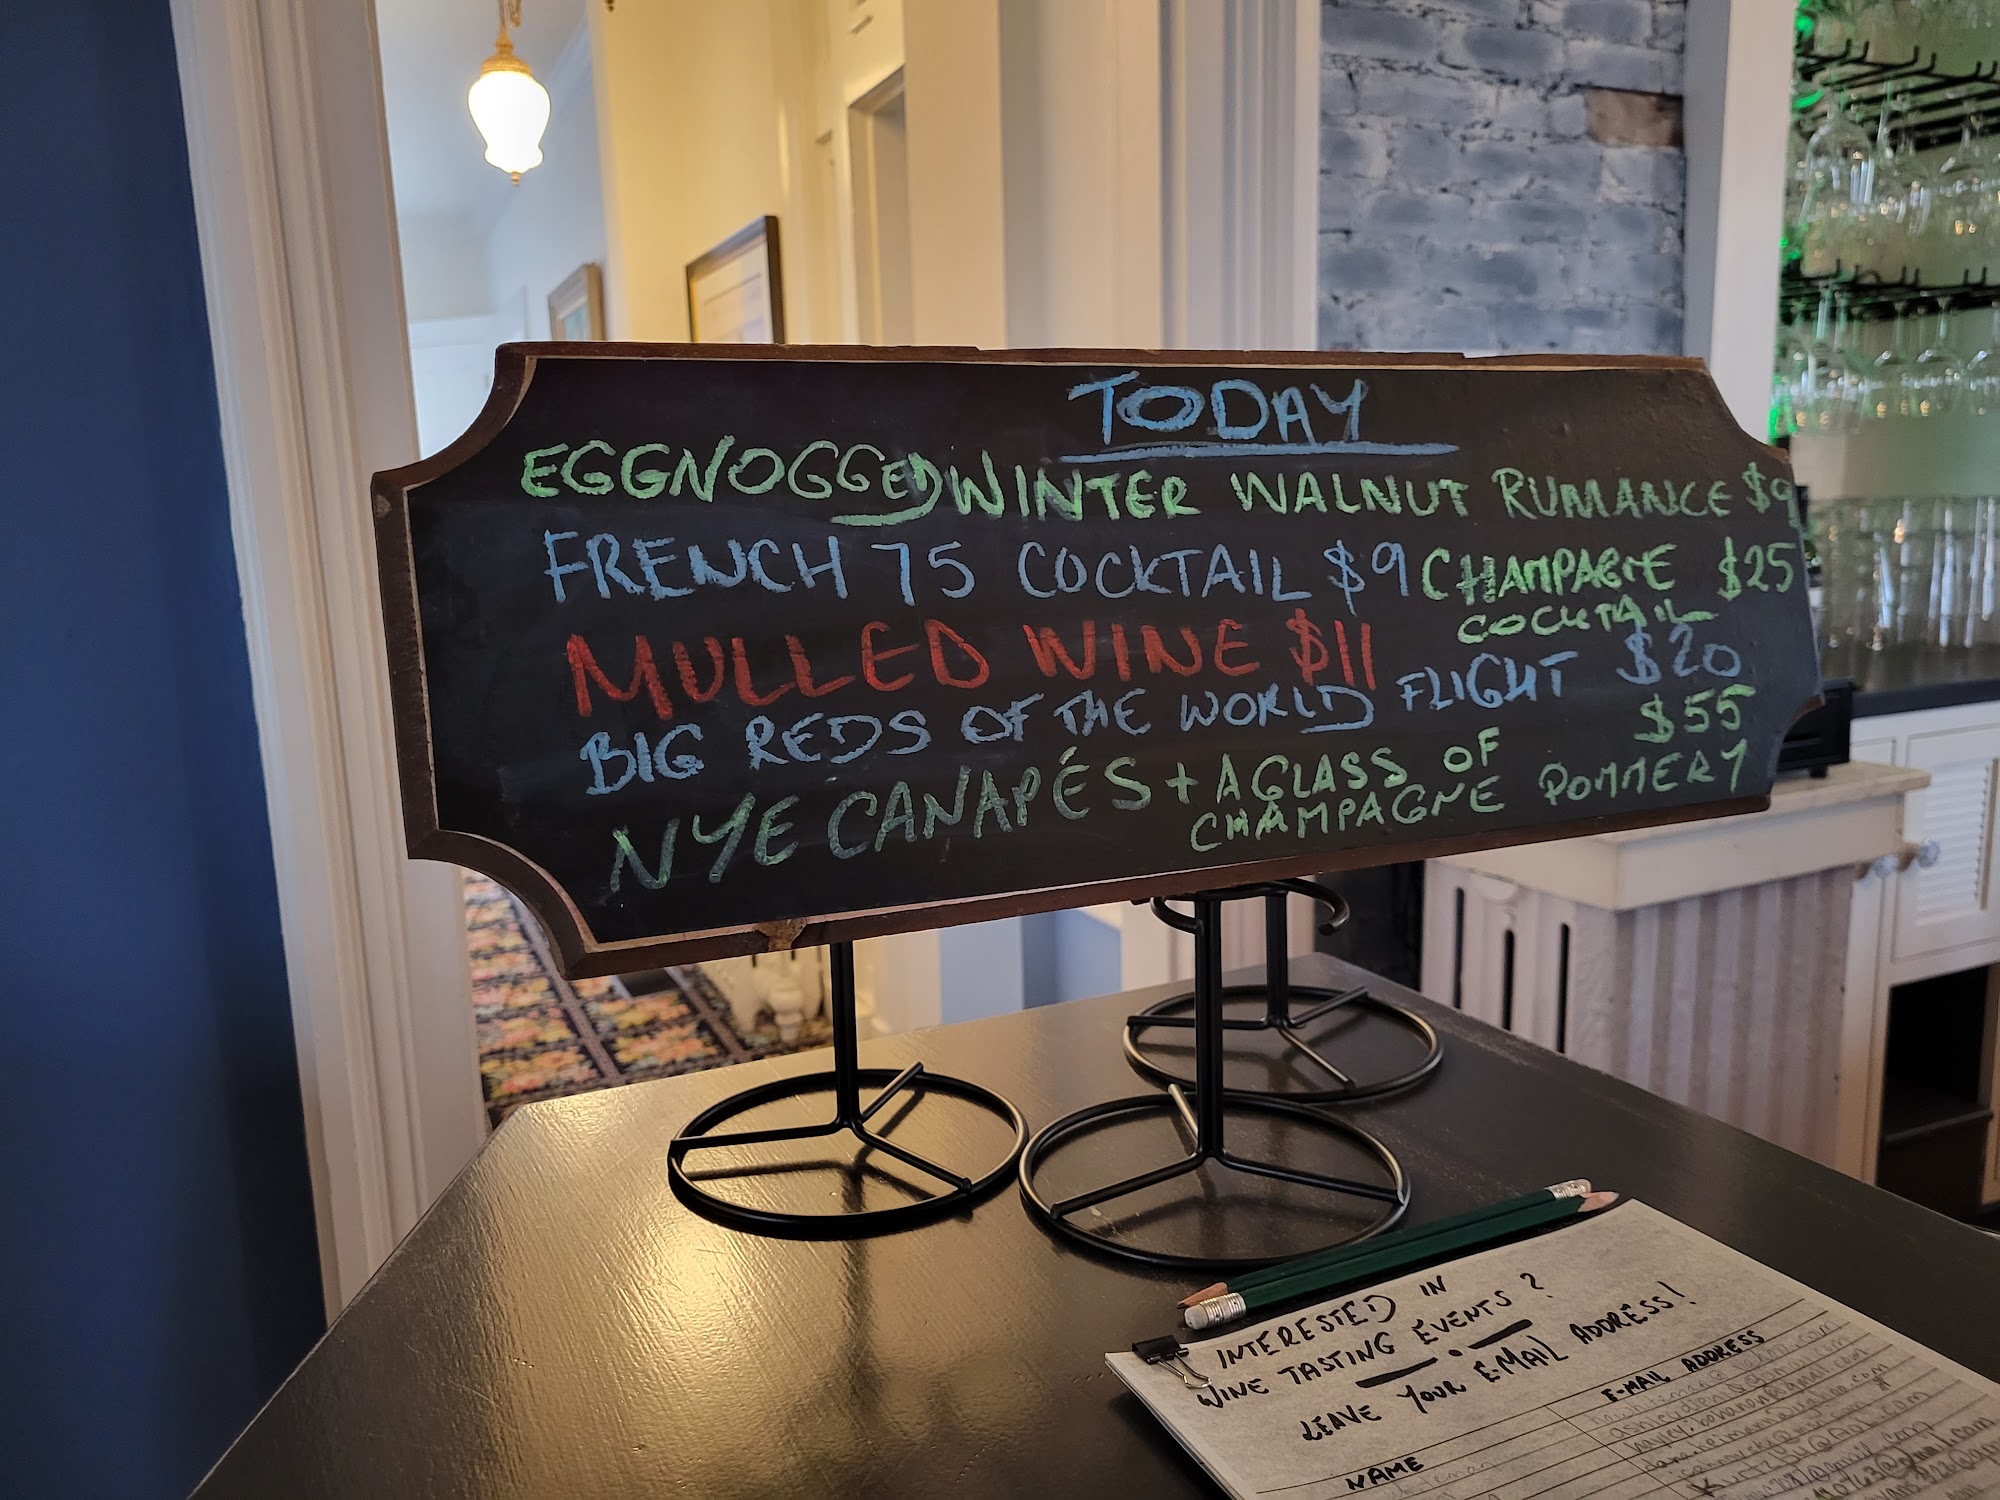 TODAY
EGGNOGGED WINTER WALNUT RUMANCE $9
FRENCH 75 COCKTAIL $9 CHAMPAGNE $25
COCKTAIL
MULLED WINE $11
BIG REDS OF THE WORLD FLIGHT $20
$55
NYE CANAPÉS + A GLASS OF
CHAMPAGNE POMMERY
INTERESTED IN
WINE TASTING EVENTS?
LEAVE YOUR E-MAIL ADDRESS!
NAME E-MAIL ADDRESS